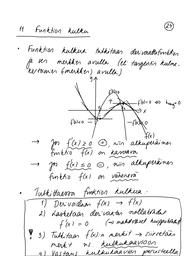 11 Funktion kulku
29
• Funktion kulkua tutkitaan derivaattafunktion
ja sen merkkien avulla (eli tangentin kulma-
kertoimen merkkien avulla)
y
x
f(x)
→ Jos f'(x) ≥ 0 ⊕, niin alkuperäinen
funktio f(x) on kasvava
→ Jos f'(x) ≤ 0 ⊖, niin alkuperäinen
funktio f(x) on vähenevä
• Tutkittaessa funktion kulkua
1) Derivoidaan f(x) → f'(x)
2) Lasketaan derivaatan nollakohdat
f'(x) = 0 (→ mahdolliset huiput)
3) Tutkitaan f'(x):n merkit → siirretään
merkit ns. kulkukaavioon
4) Vastaus kulkukaavion perusteella